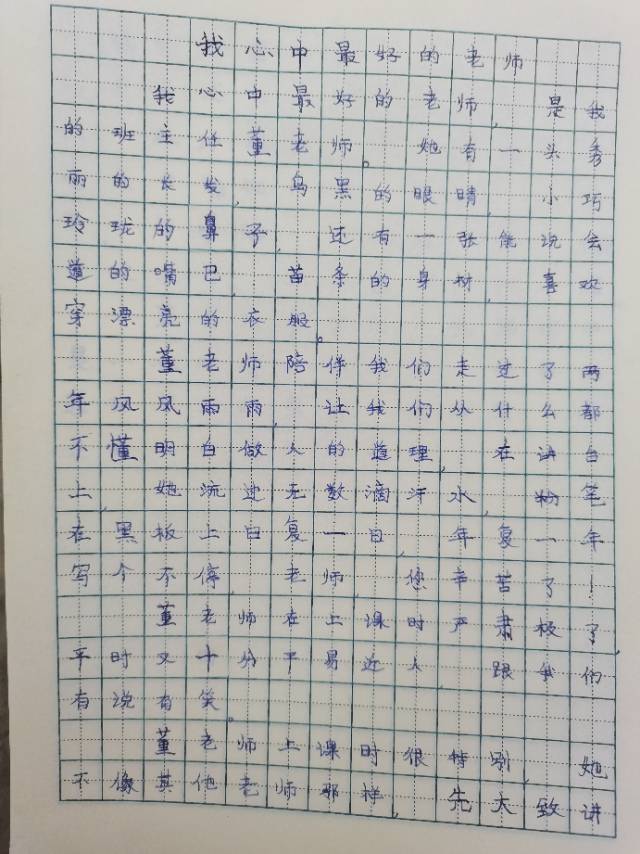 我心中最好的老师
我心中最好的老师，是我
的班主任董老师。她有一头秀
丽的长发，乌黑的眼睛，小巧
玲珑的鼻子，还有一张能说会
道的嘴巴，苗条的身材，喜欢
穿漂亮的衣服。
董老师陪伴我们走过了两
年风风雨雨，让我们从什么都
不懂明白做人的道理，在讲台
上，她流过无数滴汗水，粉笔
在黑板上日复一日，年复一年
写个不停，老师，您辛苦了！
董老师在上课时严肃极了，
平时又十分平易近人，跟我们
有说有笑。
董老师上课时很特别，她
不像其他老师那样，先大致讲